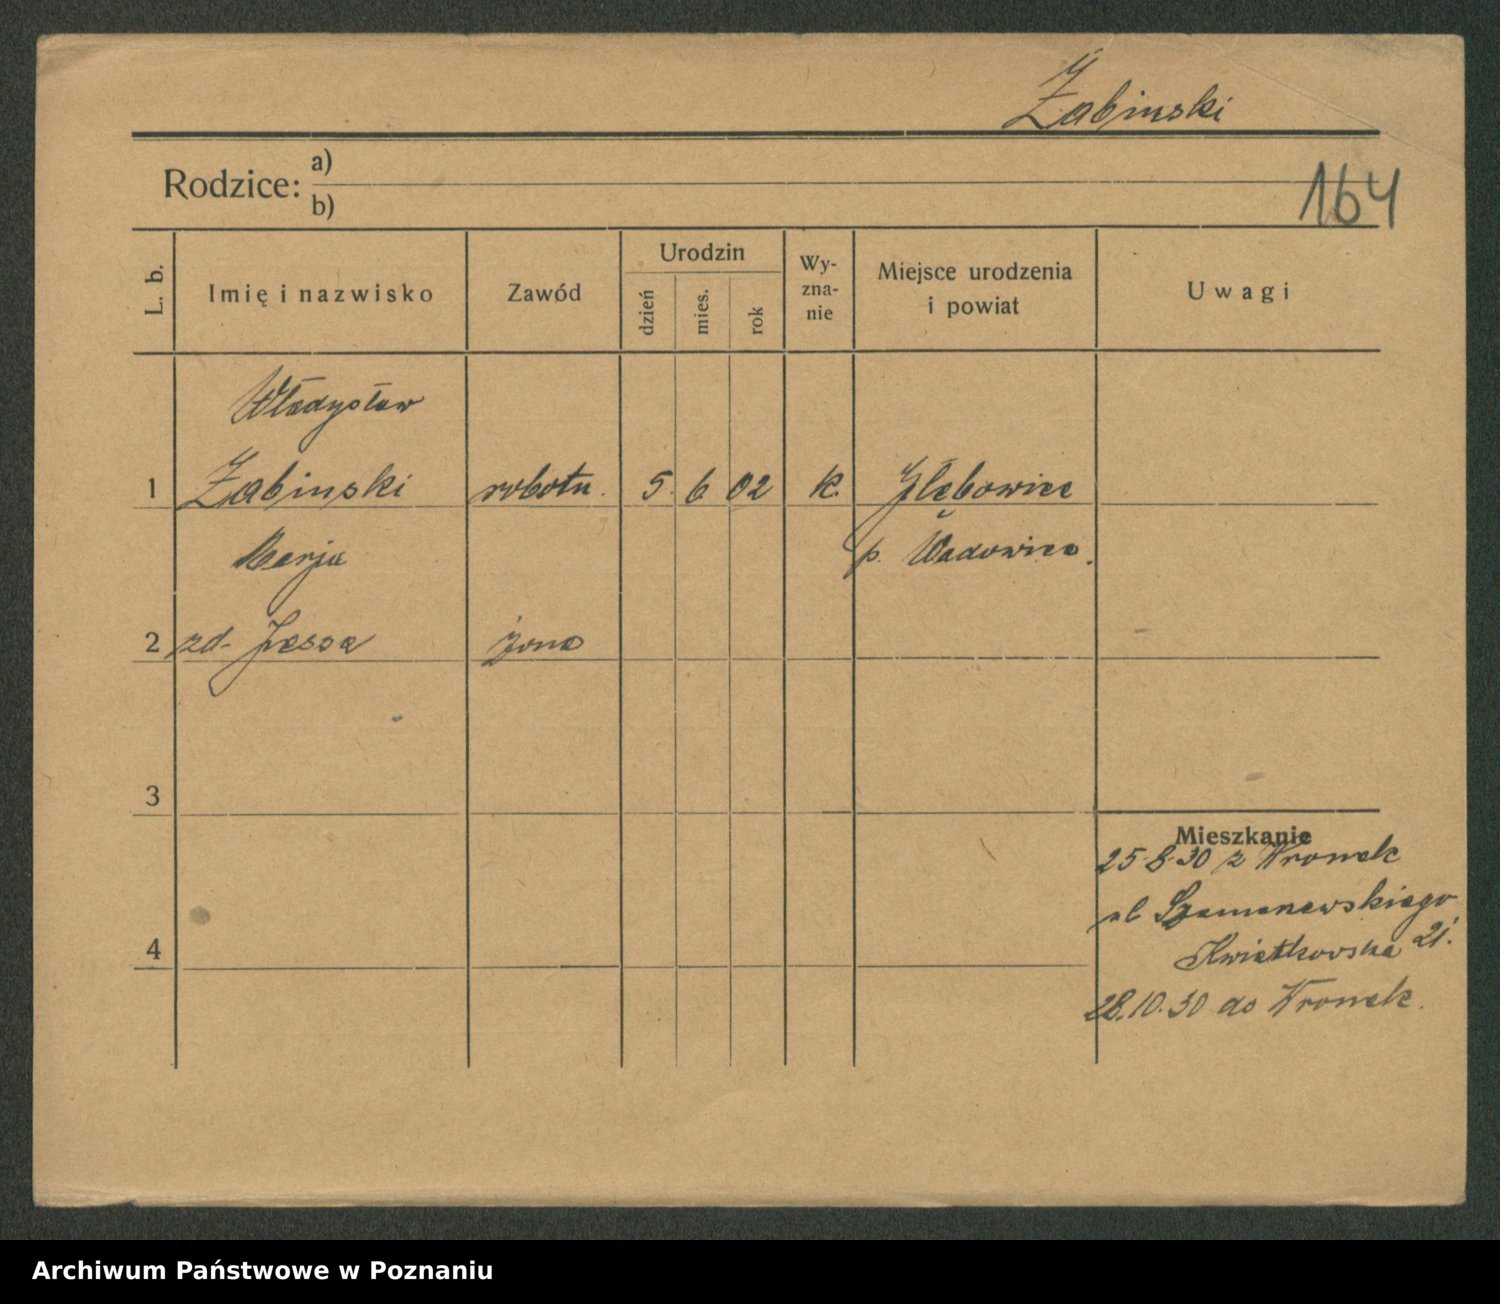 Żabinski
164
Rodzice: a)
b)
L. b.
Imię i nazwisko
Zawód
Urodzin
dzień
mies.
rok
Wy-
zna-
nie
Miejsce urodzenia
i powiat
Uwagi
Władysław
1 Żabinski robotn. 5. 6 02 k. Głębowice
Marja
p. Wadowice.
2 zd. Jassa żona
3
4
Mieszkanie
25-8-30 z Wronek
ul Szamanewskiego
Kwiatkowska 21.
28.10.30 do Wronek.
Archiwum Państwowe w Poznaniu